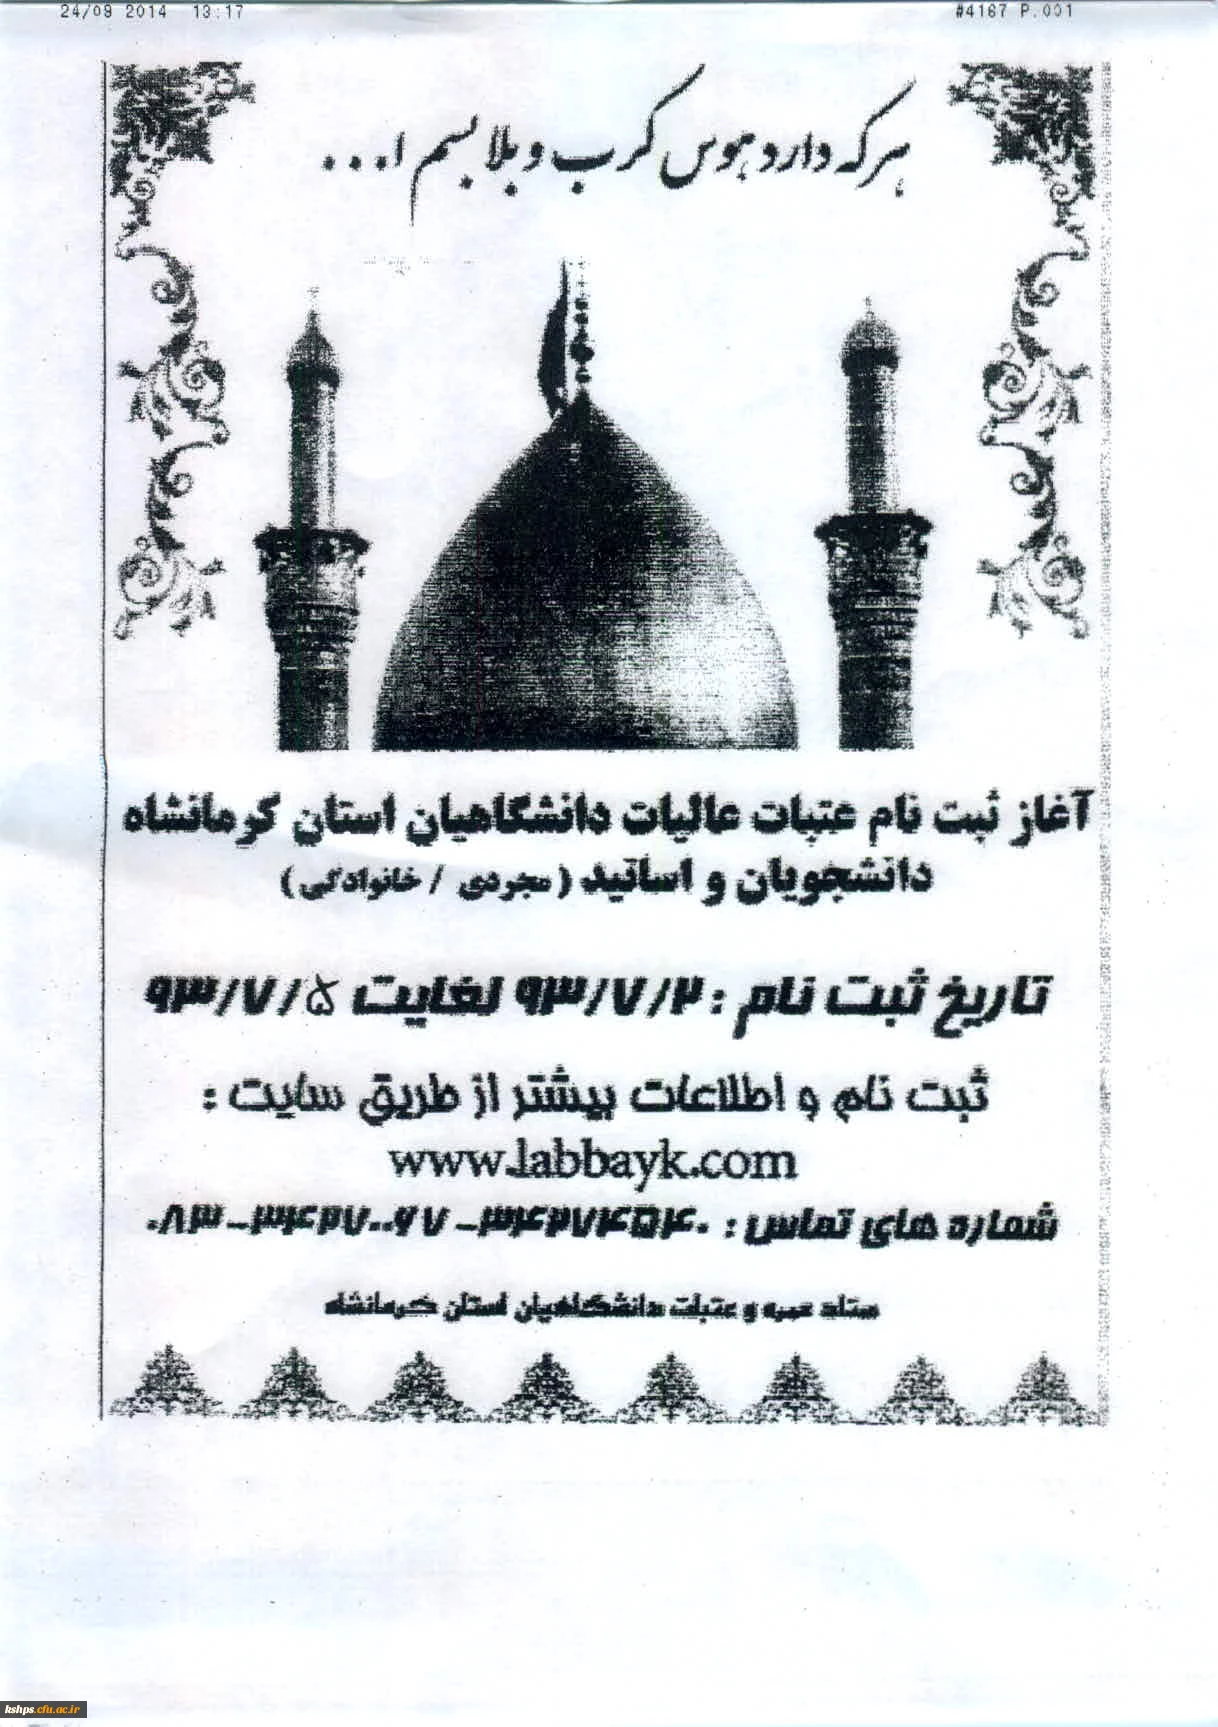 24/09 2014 13:17 #4167 P.001
هرکه دارد هوس کرب و بلا بسم ا...
آغاز ثبت نام عتبات عالیات دانشگاهیان استان کرمانشاه
دانشجویان و اساتید (مجردی / خانوادگی)
تاریخ ثبت نام : ۹۳/۷/۲ لغایت ۹۳/۷/۵
ثبت نام و اطلاعات بیشتر از طریق سایت :
www.labbayk.com
شماره های تماس : ۳۴۲۷۴۵۴۰ – ۳۴۲۷۰۰۶۷–۰۸۳
ستاد عمره و عتبات دانشگاهیان استان کرمانشاه
kshps.cfu.ac.ir